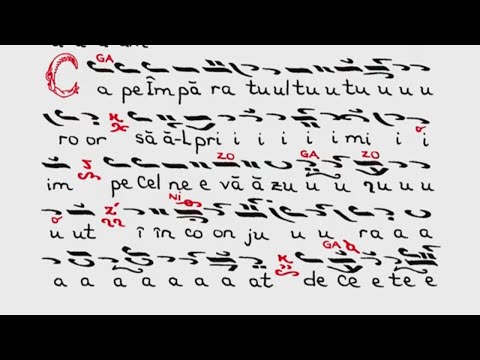 GA
C a pe Îm pă ra tu ul tu u tu u u u
ro or să ă-L pri i i i i i mi i i
ZO GA ZO
im pe Cel ne e vă ă zu u u ɳu u u
Ni
u ut î în co on ju u u ra a a
GA
a a a a a a a at de ce e te e